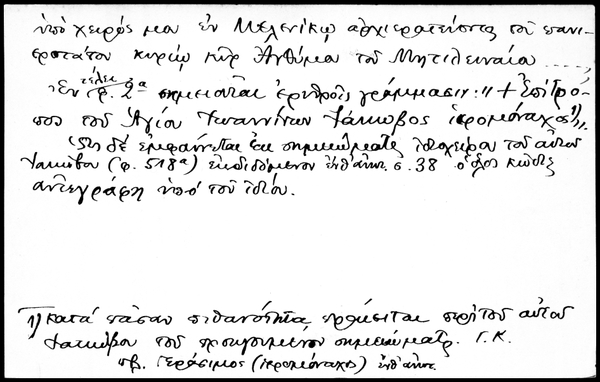 ὑπὸ χειρός μου ἐν Μελενίκῳ ἀρχιερατεύοντος τοῦ πανι-
ερωτάτου κυρίῳ κῦρ Ἀνθύμου τοῦ Μητιλειναίου .....,
Ἐν τέλει φ. 2α σημειοῦται ἐρυθροῖς γράμμασιν: "+ Ἐπιτρό-
που τοῦ Ἁγίου Ἰωαννίνων Ἰάκωβος ἱερομόναχος¹⁾".
Ὡς δὲ ἐμφαίνεται ἐκ σημειώματος ἰδιοχείρου τοῦ αὐτοῦ
Ἰακώβου (φ. 518α) ἐκδιδόμενον ἐνθ' ἀνωτ. σ. 38 ὁ ὅλος κῶδιξ
ἀντεγράφη ὑπὸ τοῦ ἰδίου.
1) κατὰ πᾶσαν πιθανότητα πρόκειται περὶ τοῦ αὐτοῦ
Ἰακώβου τοῦ προηγουμένου σημειώματος. Γ. Κ.
πβ. Γεράσιμος (ἱερομόναχος) ἐνθ' ἀνωτ.